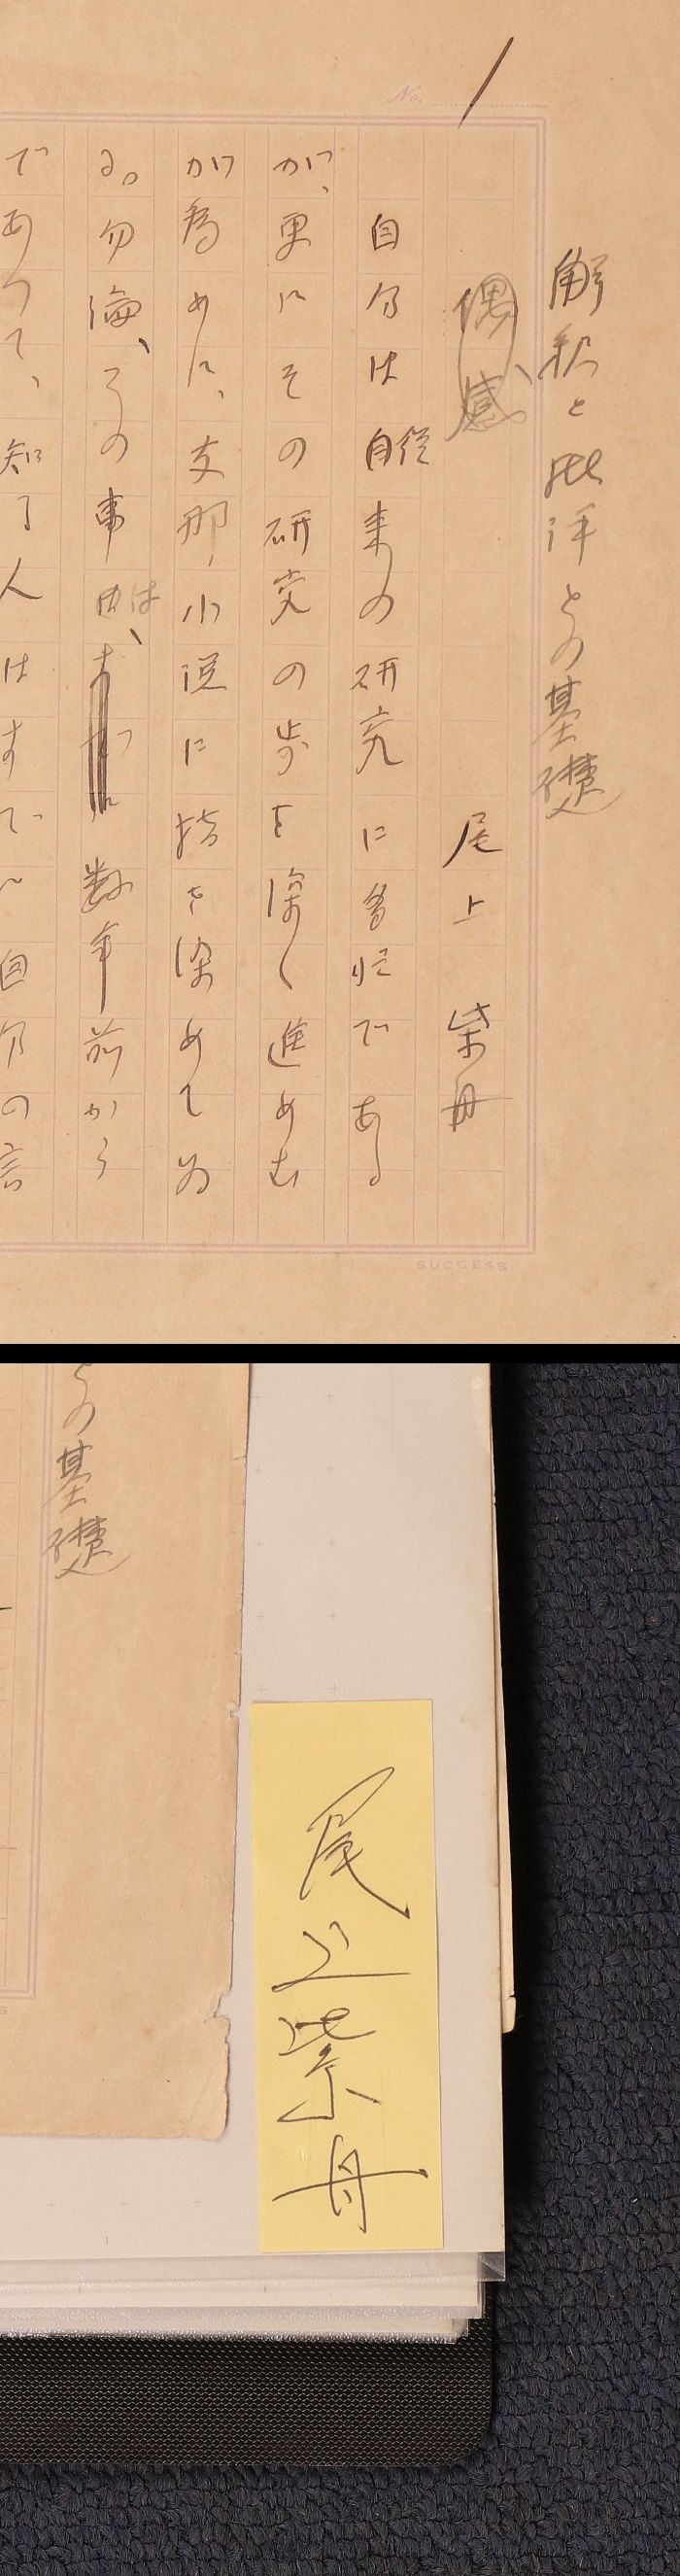 No. 1
解釈と批評との基礎
偶感、
尾上 柴舟
自分は自従来の研究に多忙である
が、更にその研究の歩を深く進めむ
が為めに、支那小説に指を染めてゐ
る。勿論、この事は、数年前から
であつて、知る人はすでに自分の言
SUCCESS
との基礎
尾上柴舟